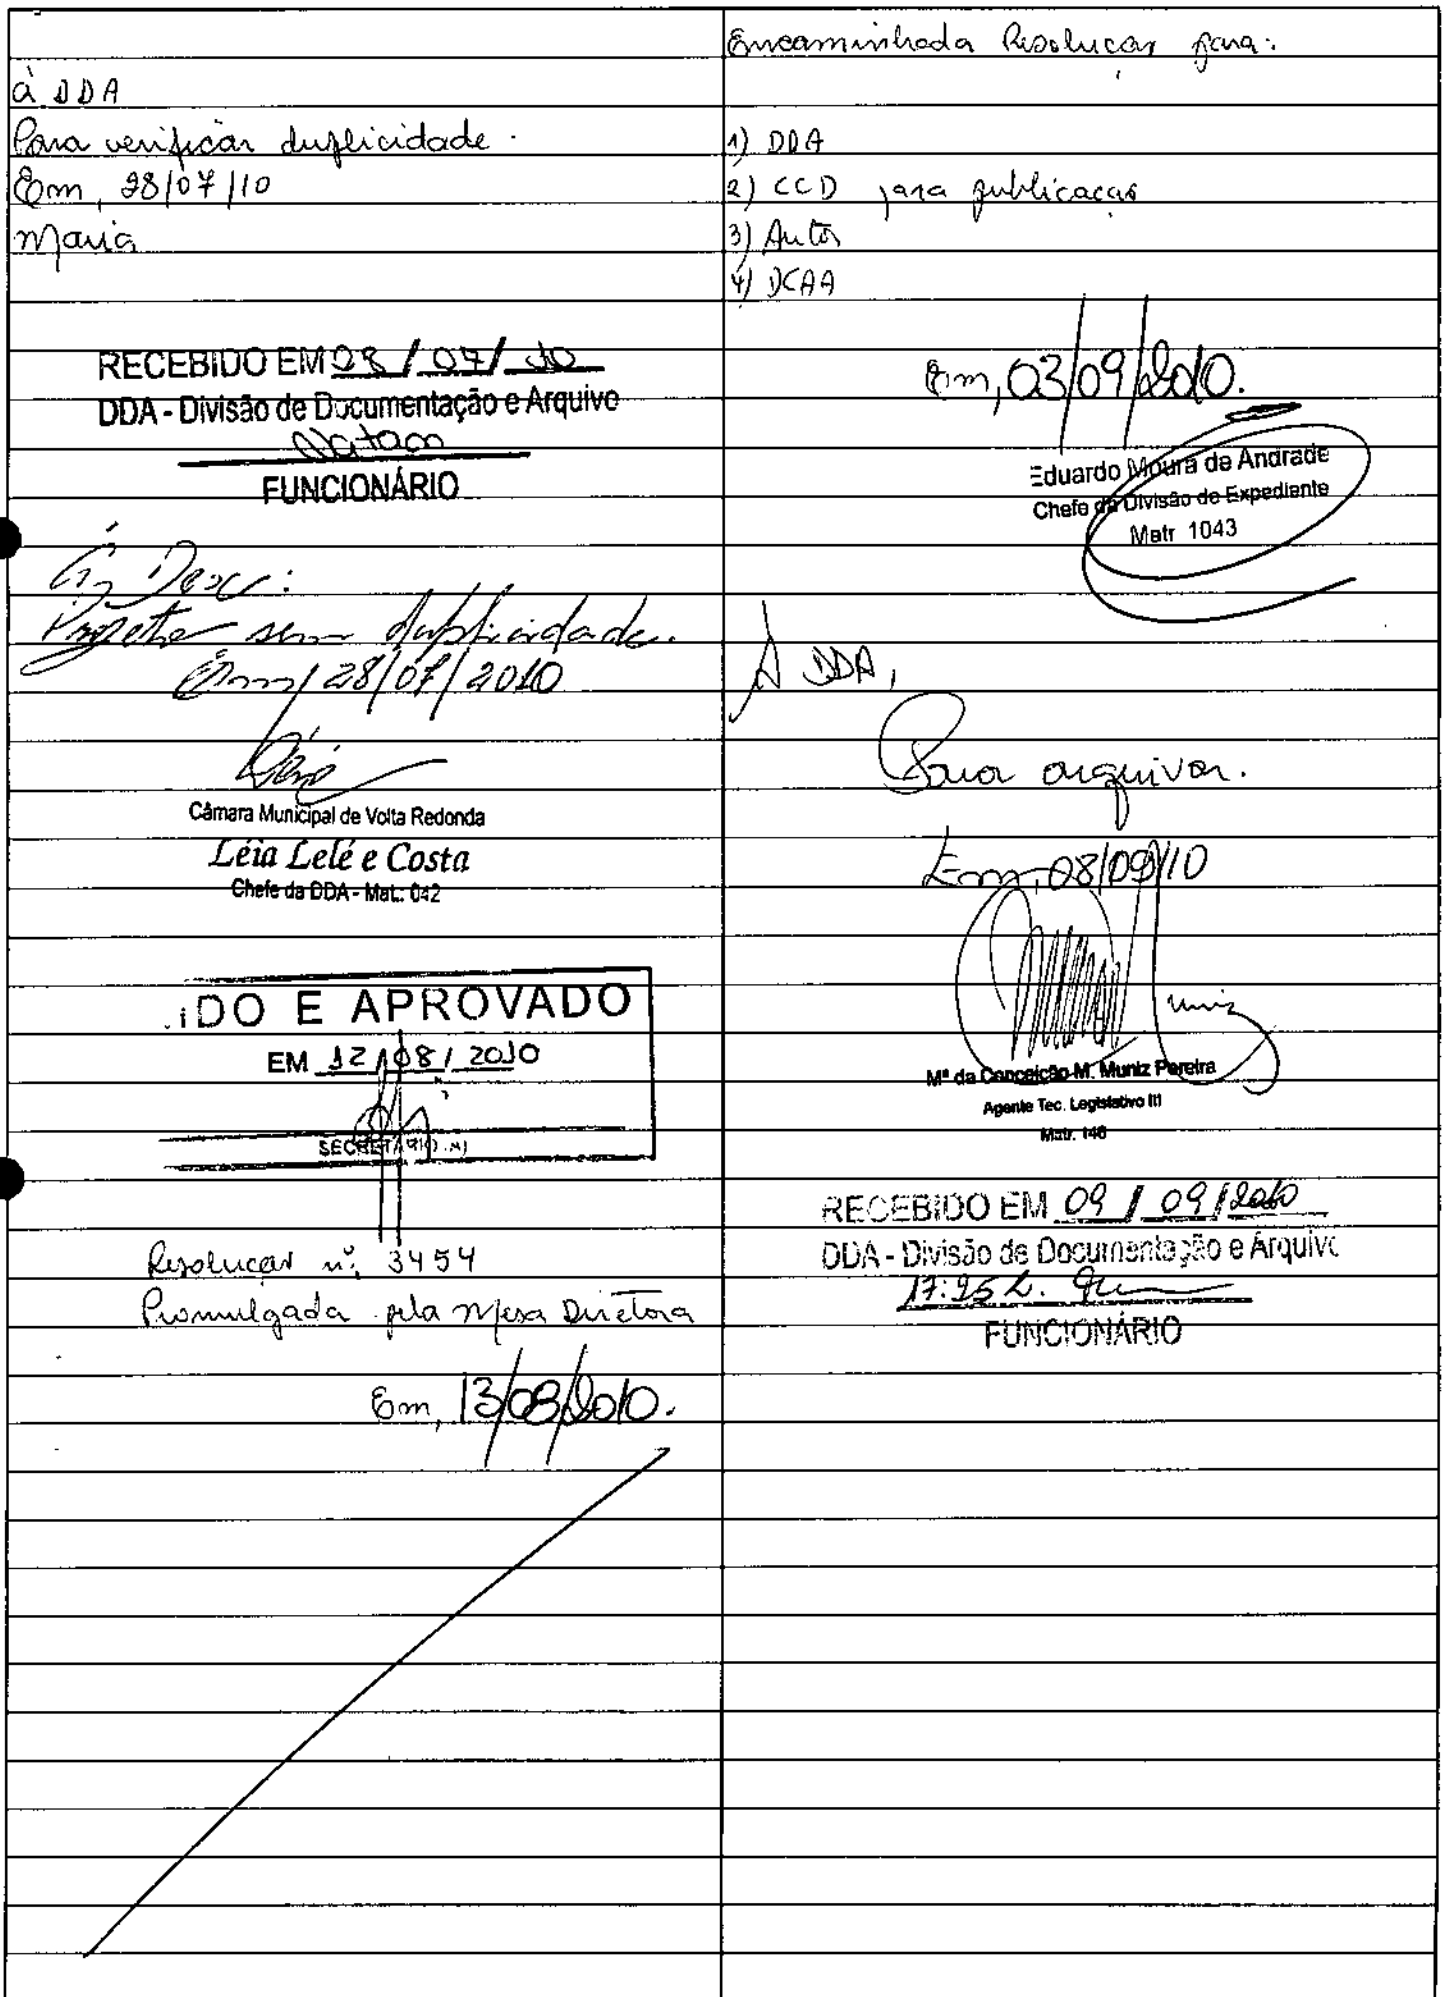 à DDA
Para verificar duplicidade.
Em, 28/07/10
Maria
RECEBIDO EM 28 / 07 / 10
DDA - Divisão de Documentação e Arquivo
Natan
FUNCIONÁRIO
sem duplicidade.
Em, 28/07/2010
Léia
Câmara Municipal de Volta Redonda
Léia Lelé e Costa
Chefe da DDA - Mat.: 042
IDO E APROVADO
EM 12 / 08 / 2010
SECRETÁRIO (A)
Resolução nº 3454
Promulgada pela Mesa Diretora
Em, 13/08/2010.
Encaminhada Resolução para:
1) DDA
2) CCD para publicação
3) Autor
4) DCAA
Em, 03/09/2010.
Eduardo Moura de Andrade
Chefe da Divisão de Expediente
Matr 1043
À DDA,
Para arquivar.
Em, 08/09/10
Muniz
Mª da Conceição M. Muniz Pereira
Agente Tec. Legislativo III
Matr. 146
RECEBIDO EM 09 / 09 / 2010
DDA - Divisão de Documentação e Arquivo
FUNCIONÁRIO